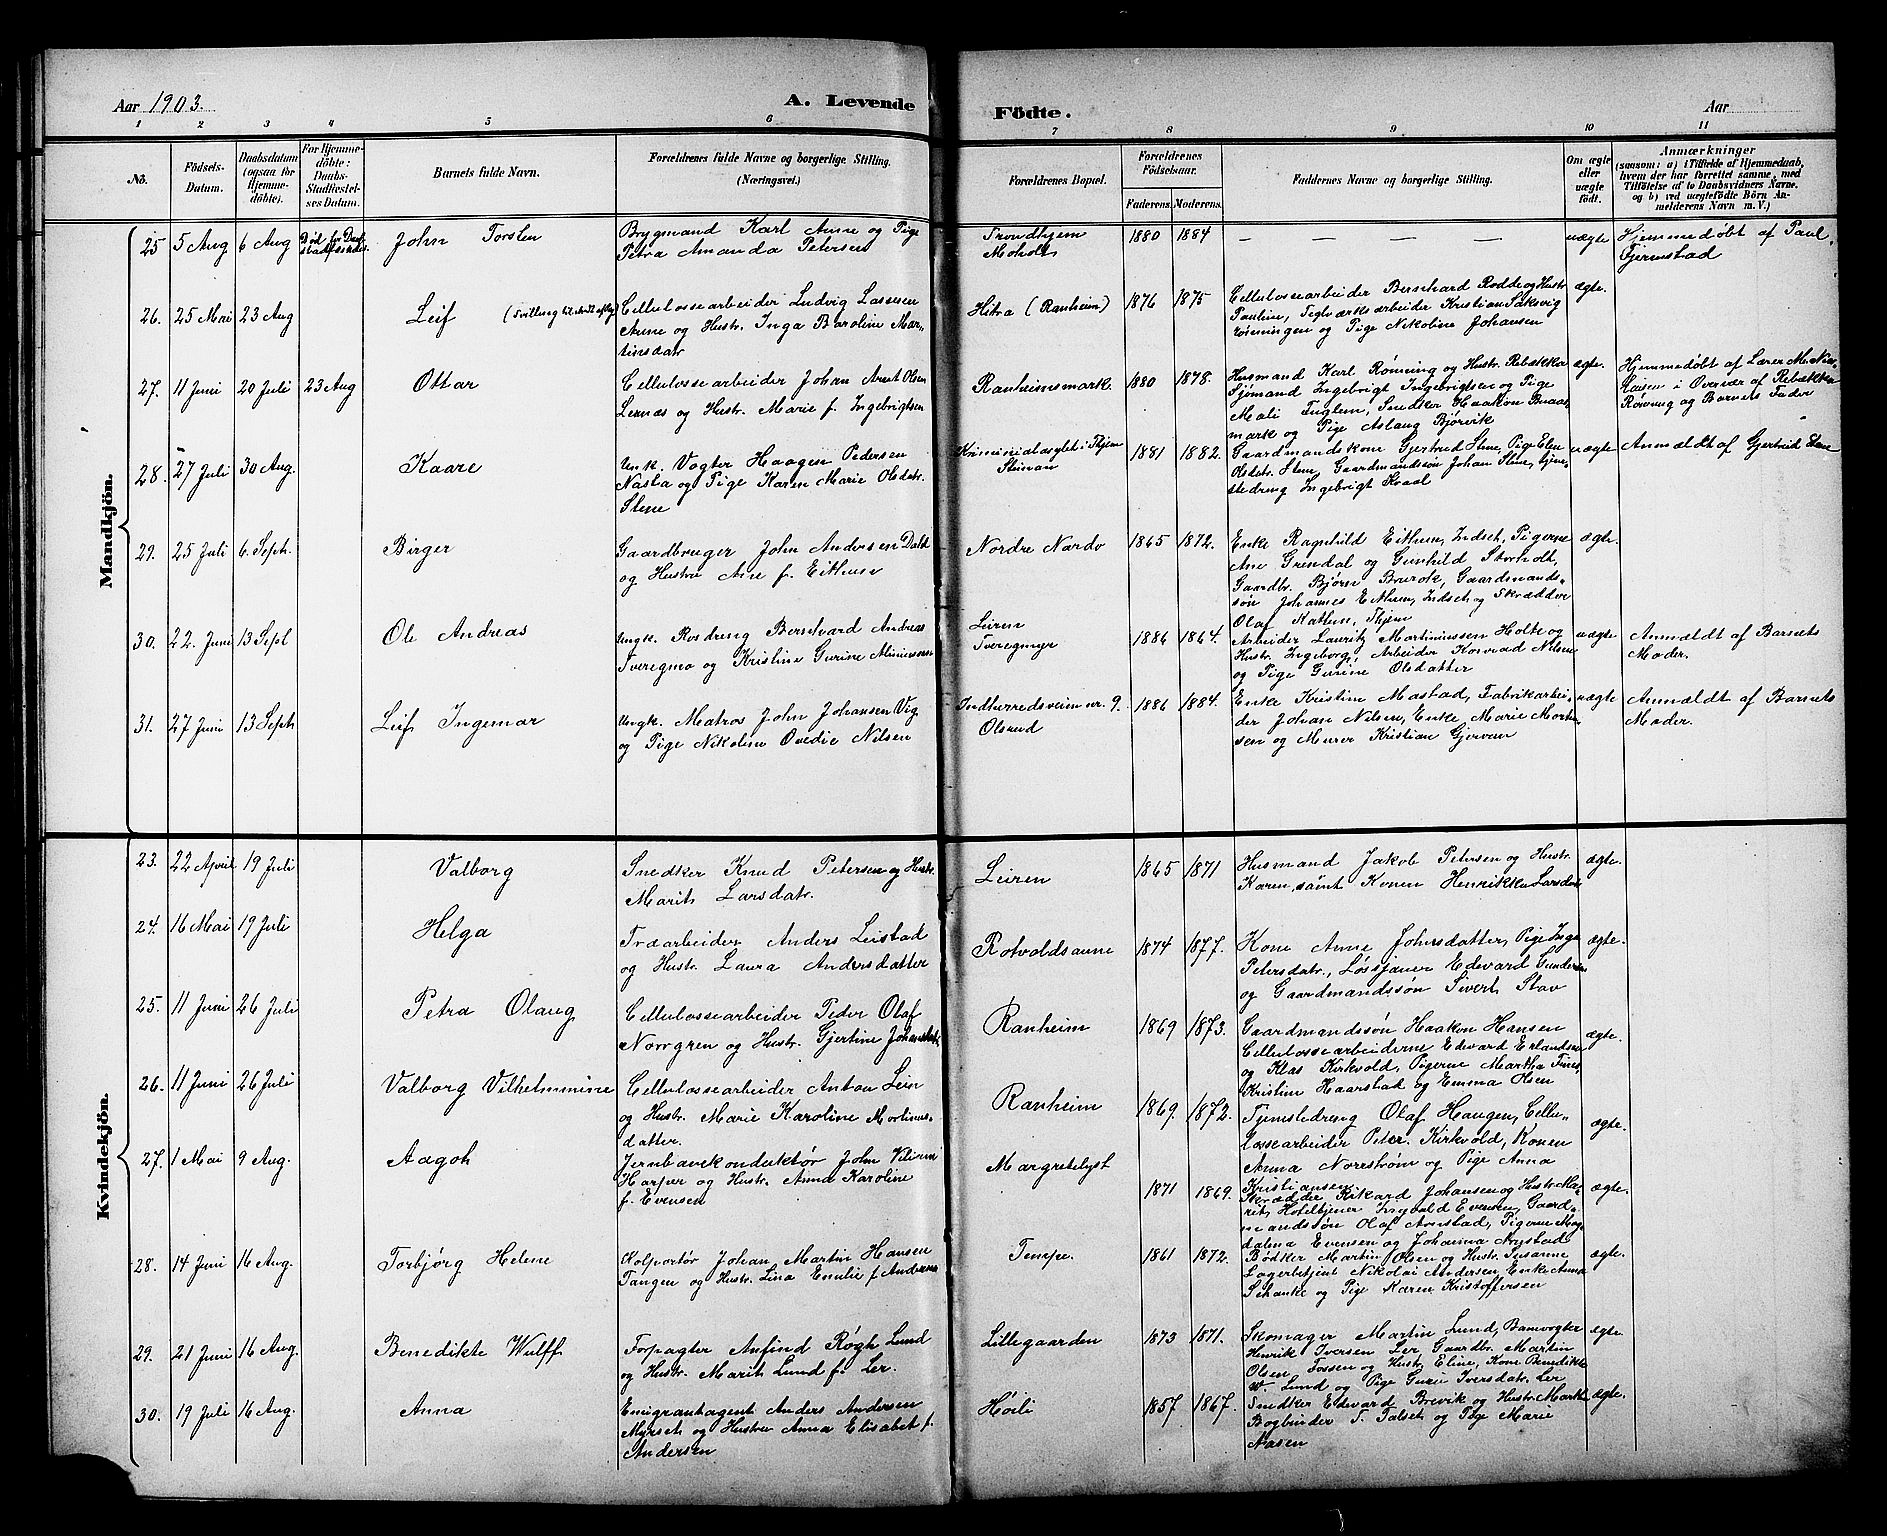 Aar 1903. A. Levende Födte. Aar
1 2 3 4 5 6 7 8 9 10 11
No. Födsels-Datum. Daabsdatum (ogsaa for Hjemme-döbte). For Hjemme-döbte: Daabs-Stadfæstel-ses Datum. Barnets fulde Navn. Forældrenes fulde Navne og borgerlige Stilling. (Næringsvei.) Forældrenes Bopæl. Forældrenes Födselsaar. Faderens. Moderens. Faddernes Navne og borgerlige Stilling. Om ægte eller uægte födt. Anmærkninger (saasom: a) i Tilfælde af Hjemmedaab, hvem der har forrettet samme, med Tilföielse af to Daabsvidners Navne, og b) ved uægtefödte Börn An-melderens Navn m. V.)
Mandkjön.
25 5 Aug 6 Aug Död før Daab stadfæstedes John Torsten
Brygmand Karl Aune og Pige
Petra Amanda Petersen
Trondhjem
Moholt
1880 1884 — — — — uægte
Hjemmedøbt af Paul
Fjermstad
26. 25 Mai 23 Aug Leif
Cellulossearbeider Ludvig Lassesen
Aune og Hustr. Inga Baroline Mar-
tinsdatr
Hitra (Ranheim) 1876 1875
Cellulossearbeider Bernhard Rodde og Hustr
Pauline, Teglværksarbeider Kristian Saksvig
rønningen og Pige Nikoline Johansen
ægte.
27. 11 Juni 20 Juli 23 Aug Ottar
Cellulossearbeider Johan Arnt Olsen
Lernæs og Hustr. Marie f. Ingebrigtsen
Ranheimsmark. 1880 1878.
Husmand Karl Rønning og Hustr. Rebækka
Sjømand Ingebrigt Ingebrigtsen og Pige
Mali Fuglem, Snedker Haakon Buaas
mark og Pige Aslaug Bjørvik
ægte.
Hjemmedøbt af Lærer M. Nic-
olaisen i Overvær af Rebækka
Rønning og Barnets Fader
28. 27 Juli 30 Aug. Kaare
Unk. Vogter Haagen Pedersen
Nasta og Pige Karen Marie Olsdatr.
Stene
Kriminialasylet i Thjem
Stenan
1881 1882.
Gaardmandskone Gjertrud Stene, Pige Elen
Olsdatr. Stene, Gaardmandssøn Johan Stene, tjene
stedreng Ingebrigt Kvaal
uægte
Anmældt af Gjertrud Stene
29. 25 Juli 6. Sept. Birger
Gaardbruger John Andersen Dahl
og Hustru Ane f. Eithun
Nordre Nardo 1865 1872.
Enke Ragnhild Eithun, Indset, Pigerne
Ane Grendal og Gunhild Storholt,
Gaardbr. Bjørn Brurok, Gaardmands-
søn Johannes Eithun, Indset og Skrædder
Olaf Kathen, Thjem
ægte.
30. 22. Juni 13 Sept Ole Andreas
Ungk. Rosdreng Berntvard Andreas
Tveregmo og Kristine Gurine
Leiren
Tveregmyr
1886 1864.
Arbeider Lauritz Martiniussen Holte og
Hustr. Ingeborg, Arbeider Konrad Nilsen
og Pige Gurine Olsdatter
uægte
Anmældt af Barnets
Moder.
31. 27 Juni 13 Sept Leif Ingemar
Ungk. Matros John Johansen Vig
og Pige Nikoline Ovedie Nilsen
Indherredsveien nr. 9.
Olsrud
1886 1884.
Enke Kristine Mastad, Fabrikarbei-
der Johan Nilsen, Enke Marie Morten
sen og Murer Kristian Gjervan
uægte
Anmældt af Barnets
Moder.
Kvindekjön.
23. 22 April 19 Juli Valborg
Snedker Knud Petersen og Hustr.
Marit Larsdatr.
Leiren 1865 1871
Husmand Jakob Petersen og Hustr.
Karen, samt Konen Henrikke Larsdn
ægte.
24. 16 Mai 19 Juli Helga
Træarbeider Anders Leistad
og Hustr. Laura Andersdatter
Rotvoldsaune 1874 1877.
Kone Anne Johnsdatter, Pige Inga
Petersdatr., Løssjauer Edevard Gundersen
og Gaardmandssøn Sivert Stav
ægte.
25. 11 Juni 26 Juli Petra Olaug
Cellulossearbeider Peder Olaf
Norrgren og Hustr. Gjertine Johansdatr.
Ranheim 1869 1873.
Gaardmandssøn Haakon Hansen
Cellulossearbeiderne Edevard Erlandsen
og Klas Kirkvold, Pigerne Martha Fines
Kristine Haarstad og Emma Olsen
ægte.
26. 11 Juni 26 Juli Valborg Vilhelmmine
Cellulossearbeider Anton Lein
og Hustr. Marie Karoline Mortinus-
datter.
Ranheim 1869. 1872.
Tjenestedreng Olaf Haugen, Cellu-
lossearbeider Peter Kirkvold, Konen
Anna Norrstrøm og Pige Anna
Kristiansen
ægte.
27. 1 Mai 9 Aug. Aagoh
Jernbanekonduktør John
Harper og Hustr. Anna Karoline
f. Evensen
Margretelyst 1871 1869.
Skrædder Rikard Johansen og Hustr. Ma-
rit, Hoteltjener Ingvald Evensen, Gaard-
mandssøn Olaf Anstad, Pigerne Mag-
dalena Evensen og Johanna Anstad
ægte.
28. 14 Juni 16 Aug. Torbjørg Helene
Kolportør Johan Martin Hansen
Tangen og Hustr. Lina Emilie f. Andersen
Tempe. 1861 1872.
Bødker Martin Olsen og Hustr. Susanne
Lagerbetjent Nikolai Andersen, Enke Anna
Schanke og Pige Karen Kristoffersen
ægte.
29. 21 Juni 16 Aug. Benedikte Wulff
Forpagter Anfind Røgh Lund
og Hustr. Marit Lund f. Ler.
Lillegaarden 1873 1871.
Skomager Martin Lund, Banevogter
Henrik Iversen Ler Gaardbr. Martin
Olsen Fossen og Hustr. Eline, Kone Benedikte
W. Lund og Pige Guru Iversdatr. Ler
ægte.
30. 19 Juli 16 Aug. Anna
Emigrantagent Anders Andersen
Myrseth og Hustru Anna Elisabet f.
Andersen
Høili 1857 1867.
Snedker Edevard Brevik og Hustr. Marth
Bogbinder T. Talset og Pige Marie
Aasen
ægte.